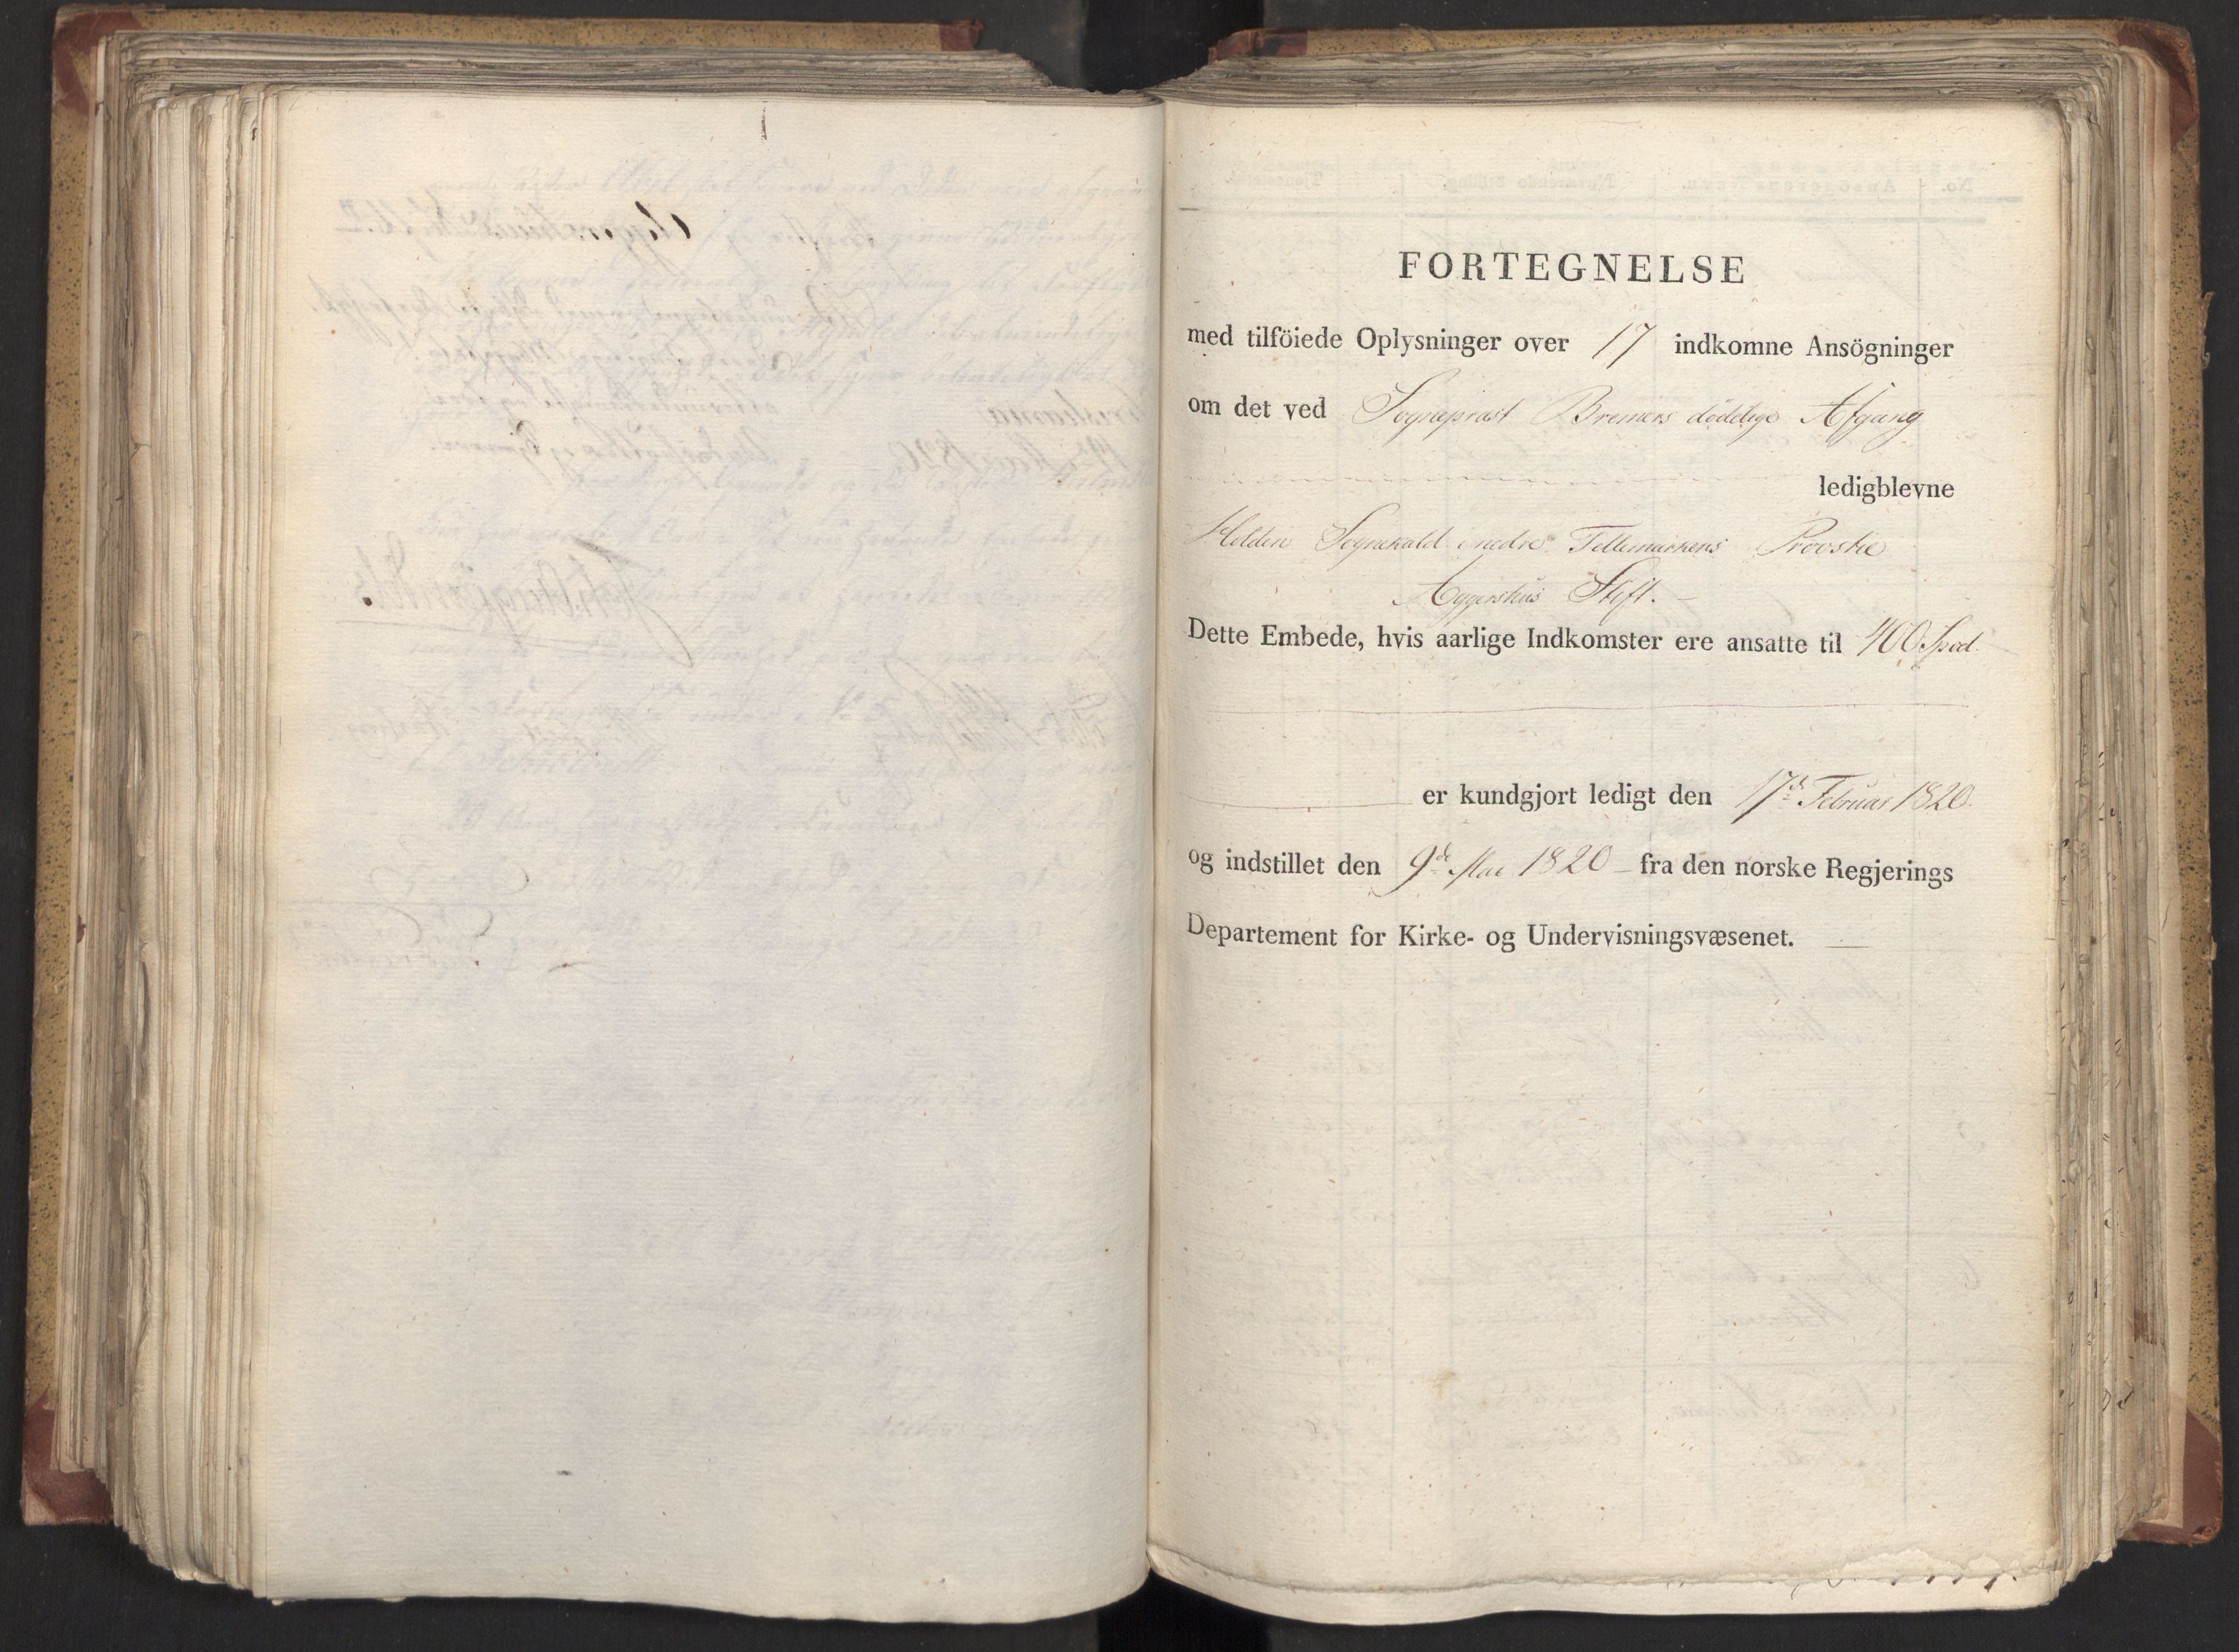 FORTEGNELSE
med tilföiede Oplysninger over 17 indkomne Ansögninger
om det ved Sognepræst Bremers dödelige Afgang
ledigblevne
Holden Sognekald i nedre Tellemarkens Provstie
Aggershus Stift.
Dette Embede, hvis aarlige Indkomster ere ansatte til 400 Spd.
er kundgjort ledigt den 17de Februar 1820.
og indstillet den 9de Mai 1820 – fra den norske Regjerings
Departement for Kirke- og Undervisningsvæsenet.